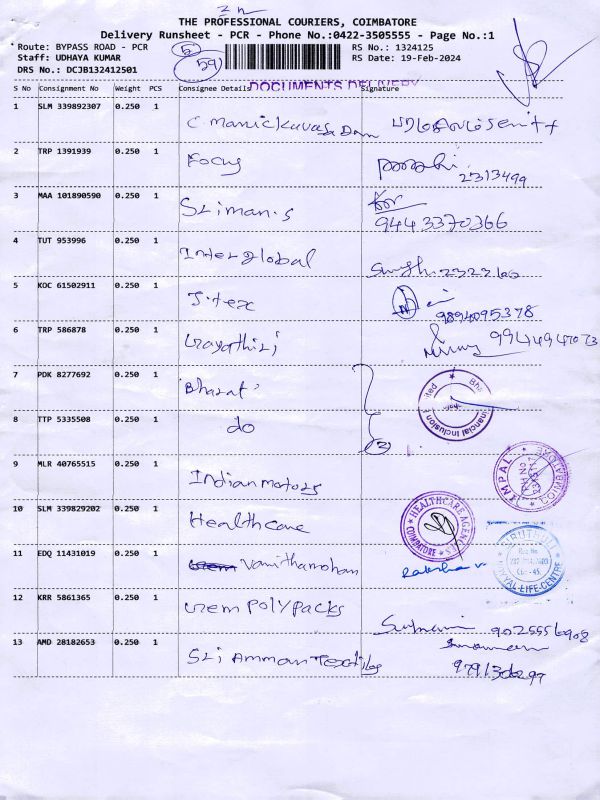 THE PROFESSIONAL COURIERS, COIMBATORE
Delivery Runsheet - PCR - Phone No.:0422-3505555 - Page No.:1
Route: BYPASS ROAD - PCR
RS No.: 1324125
Staff: UDHAYA KUMAR
RS Date: 19-Feb-2024
DRS No.: DCJB132412501
59
DOCUMENTS DELIVERY
S No Consignment No Weight PCS Consignee Details Signature
1 SLM 339892307 0.250 1
C. Manickavasadam
2 TRP 1391939 0.250 1
Focus
2313499
3 MAA 101890590 0.250 1
Sliman.s
9443370366
4 TUT 953996 0.250 1
Interglobal
5 KOC 61502911 0.250 1
J.tex
9894095378
6 TRP 586878 0.250 1
Gayathiri
9944947073
7 PDK 8277692 0.250 1
Bharat
8 TTP 5335508 0.250 1
do
(2)
Financial Inclusion
9 MLR 40765515 0.250 1
Indian motors
IMPAL
COIMBATORE
10 SLM 339829202 0.250 1
Healthcare
HEALTHCARE AGENCIES
COIMBATORE
11 EDQ 11431019 0.250 1
Vanithamohan
ROYAL-LIFE-CENTRE
12 KRR 5861365 0.250 1
Gem Polypacks
13 AMD 28182653 0.250 1
Sri Amman Textiles